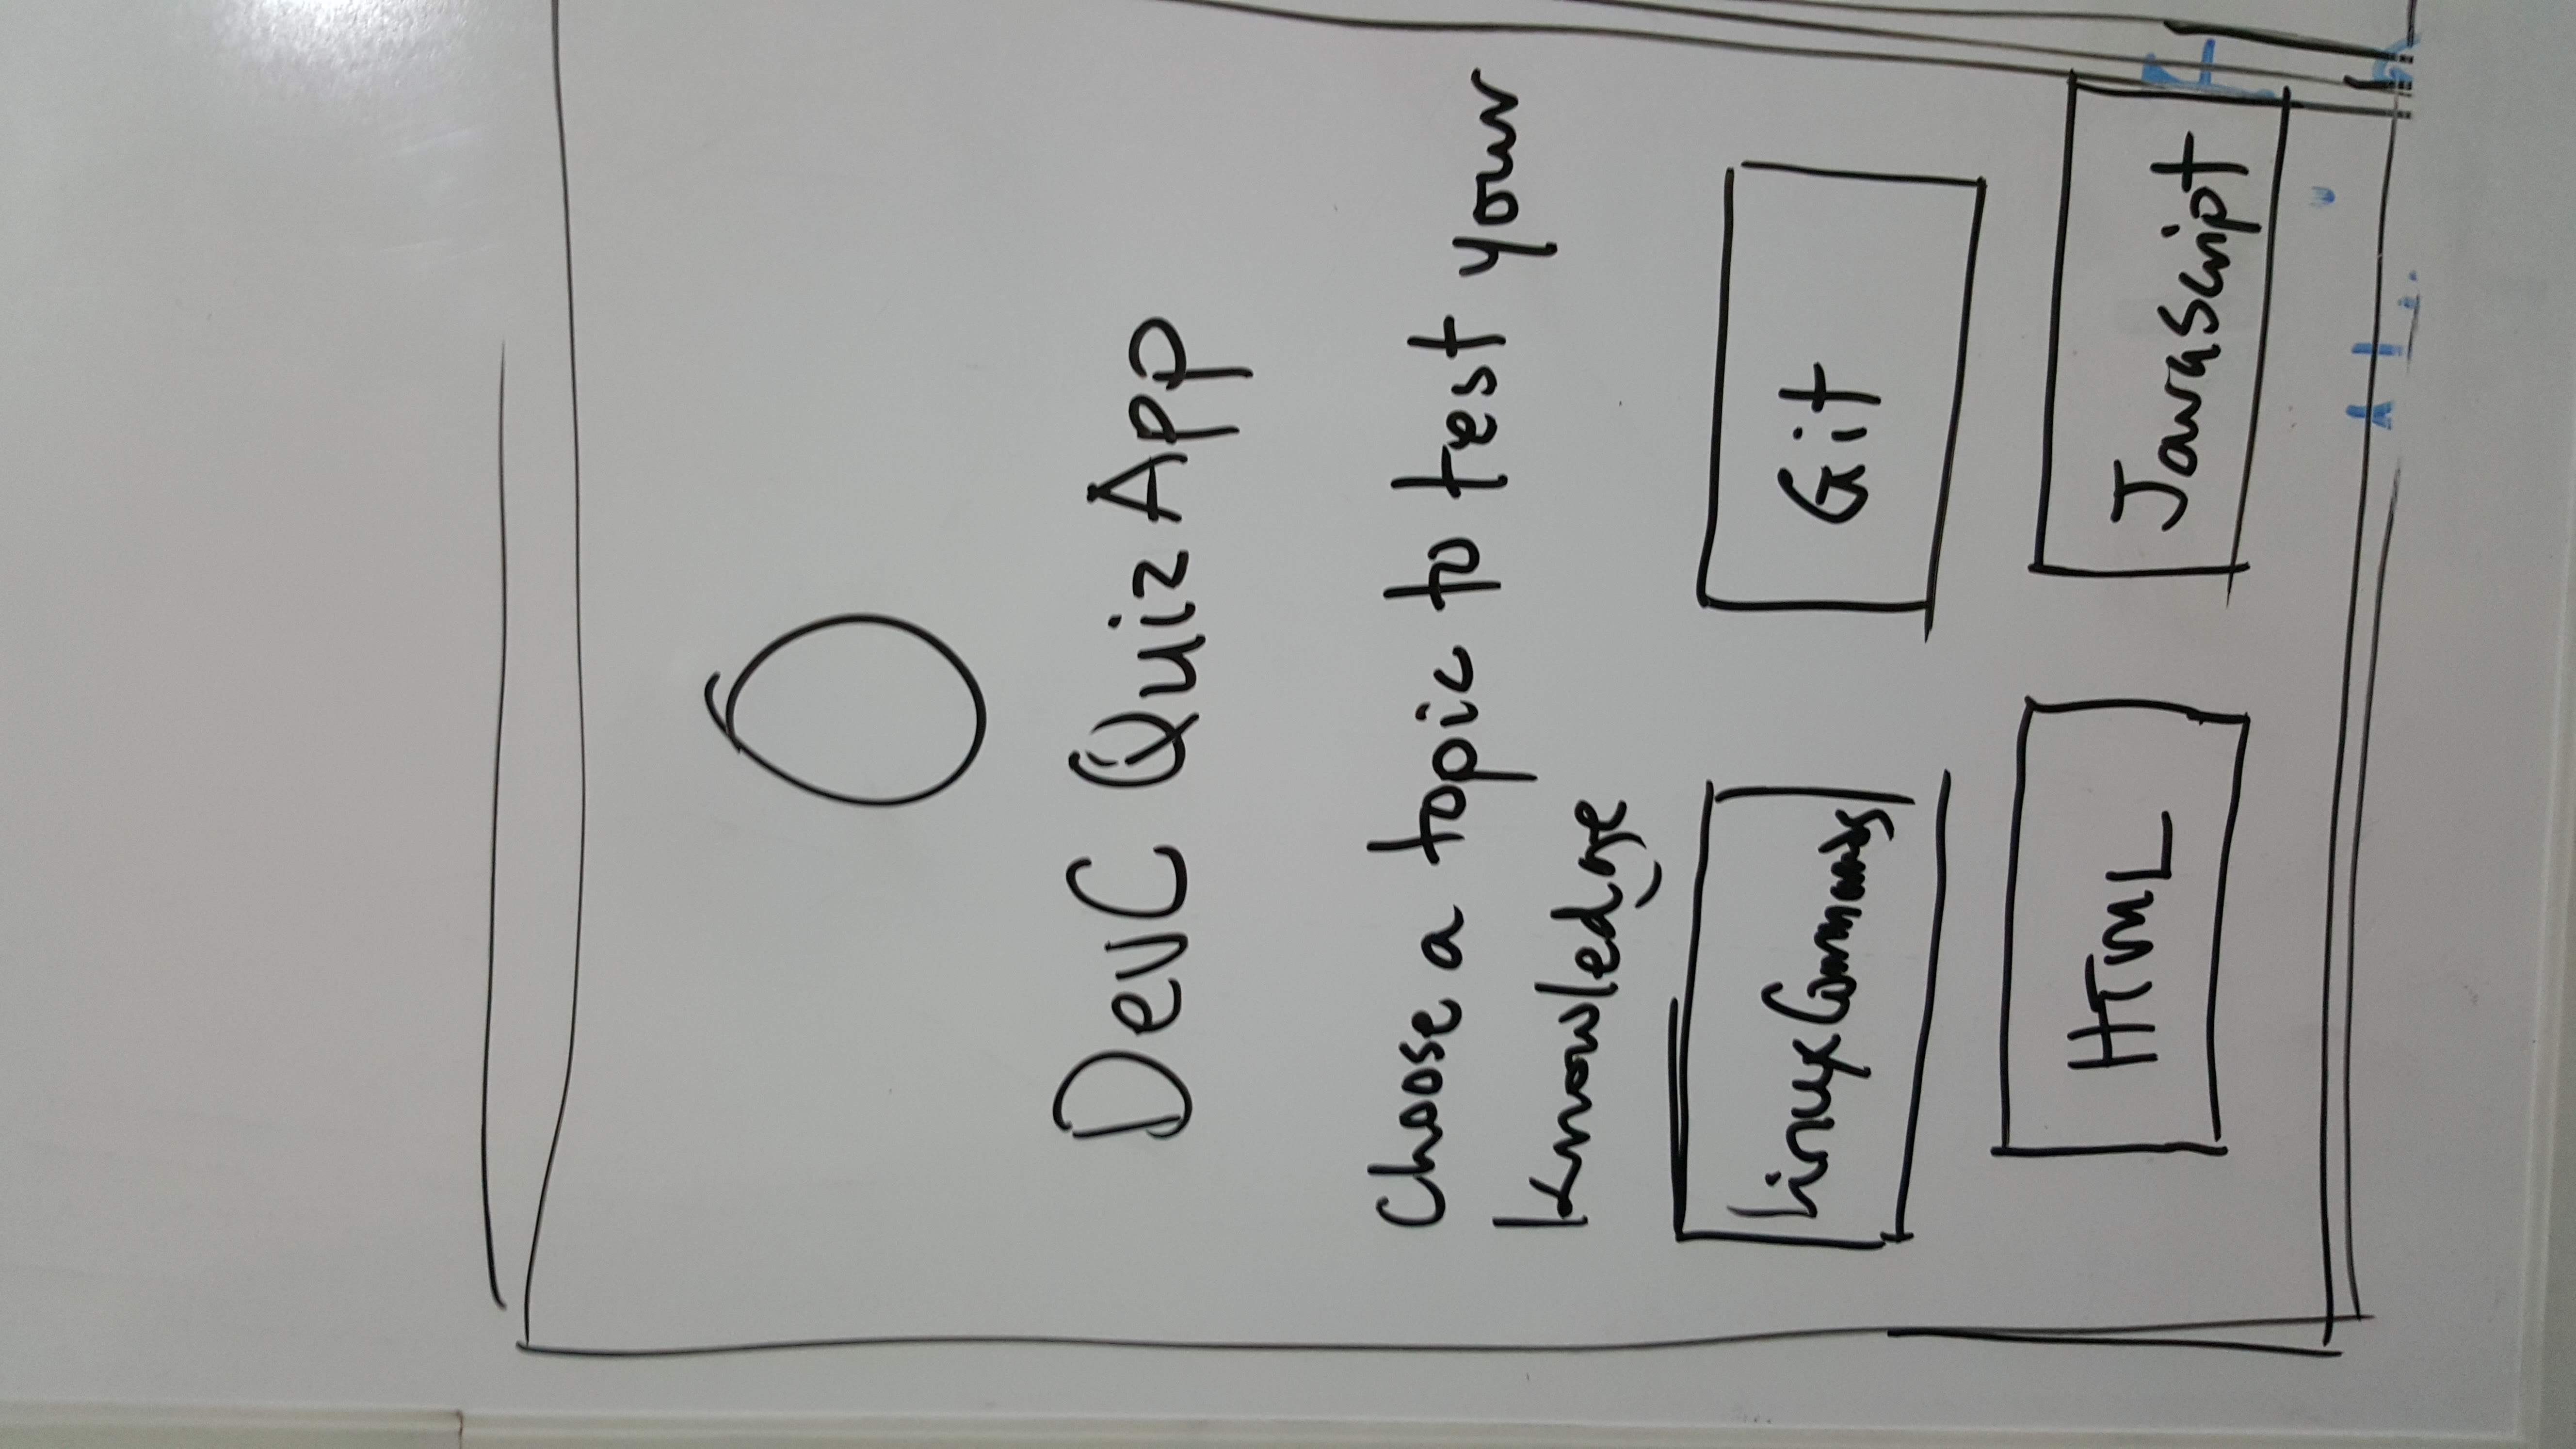 DevC Quiz App
Choose a topic to test your
knowledge
Linux Commands
Git
HTML
Javascript